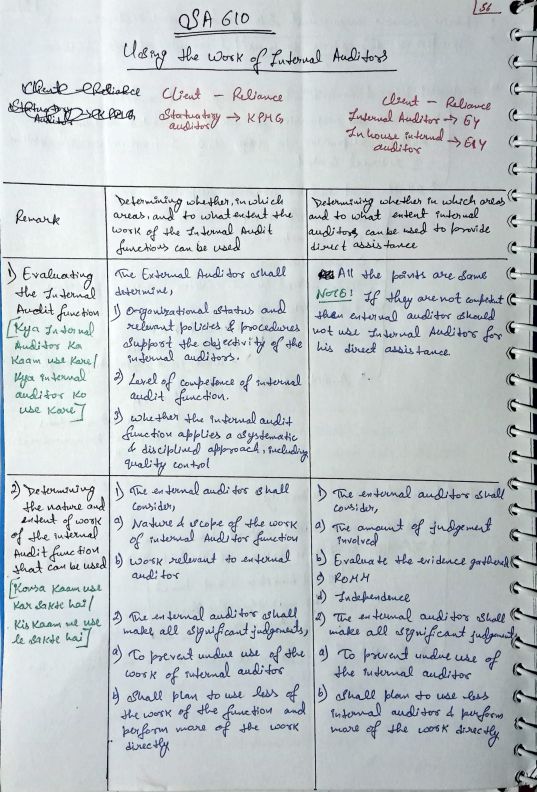 56
QSA 610
Using the Work of Internal Auditors
Client - Reliance
Client - Reliance
Statuatory auditor → KPMG
Client - Reliance
Internal Auditor → EY
Inhouse internal auditor → E&Y
Remark
Determining whether, in which
areas, and to what extent the
work of the Internal Audit
functions can be used
Determining whether in which areas
and to what extent internal
auditors can be used to provide
direct assistance
1) Evaluating
the Internal
Audit function
[Kya Internal
Auditor Ka
Kaam use Kare/
Kya internal
auditor Ko
use Kare]
The External Auditor shall
determine,
1) Organizational status and
relevant policies & procedures
support the objectivity of the
internal auditors.
2) Level of competence of internal
audit function.
3) Whether the internal audit
function applies a systematic
& disciplined approach, including
quality control
All the points are same
Note: If they are not competent
then external auditor should
not use Internal Auditor for
his direct assistance.
2) Determining
the nature and
extent of work
of the Internal
Audit function
that can be used
[Konsa Kaam use
Kar sakte hai/
Kis Kaam me use
le sakte hai]
1) The external auditor shall
consider,
a) Nature & scope of the work
of internal Auditor function
b) Work relevant to external
auditor
2) The external auditor shall
make all significant judgements,
a) To prevent undue use of the
work of internal auditor
b) Shall plan to use less of
the work of the function and
perform more of the work
directly
1) The external auditor shall
consider,
a) The amount of judgement
involved
b) Evaluate the evidence gathered
c) ROMM
d) Independence
2) The external auditor shall
make all significant judgement,
a) To prevent undue use of
the internal auditor
b) Shall plan to use less
internal auditor & perform
more of the work directly